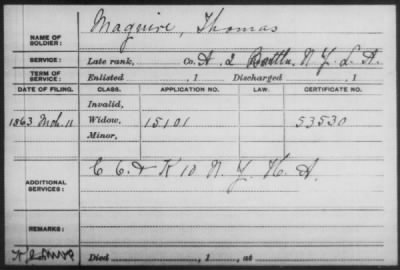 Maguire, Thomas
NAME OF SOLDIER:
SERVICE: Late rank, Co. A. 2 Battln. N. Y. L. A.
TERM OF SERVICE: Enlisted , 1 Discharged , 1
DATE OF FILING. CLASS. APPLICATION NO. LAW. CERTIFICATE NO.
Invalid,
1863 Mch. 11 Widow, 15101 53530
Minor,
C 6. & K 10 N. Y. H. A.
ADDITIONAL SERVICES:
REMARKS:
Died , 1 , at